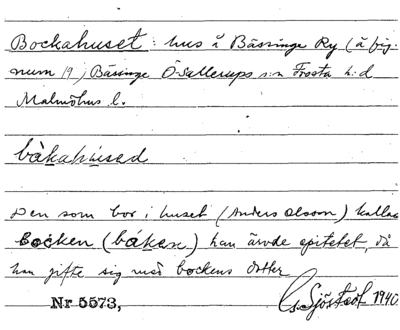 Bockahuset: hus å Bässinge Ry (å fig.
num 19) Bässinge Ö Sallerups s:n Frosta h:d
Malmöhus l.
båkahùsed
Den som bor i huset (Anders Olsson) kallas
Bocken (båken) han ärvde epitetet, då
han gifte sig med bockens dotter
Nr 5573, G. Sjöstedt 1940